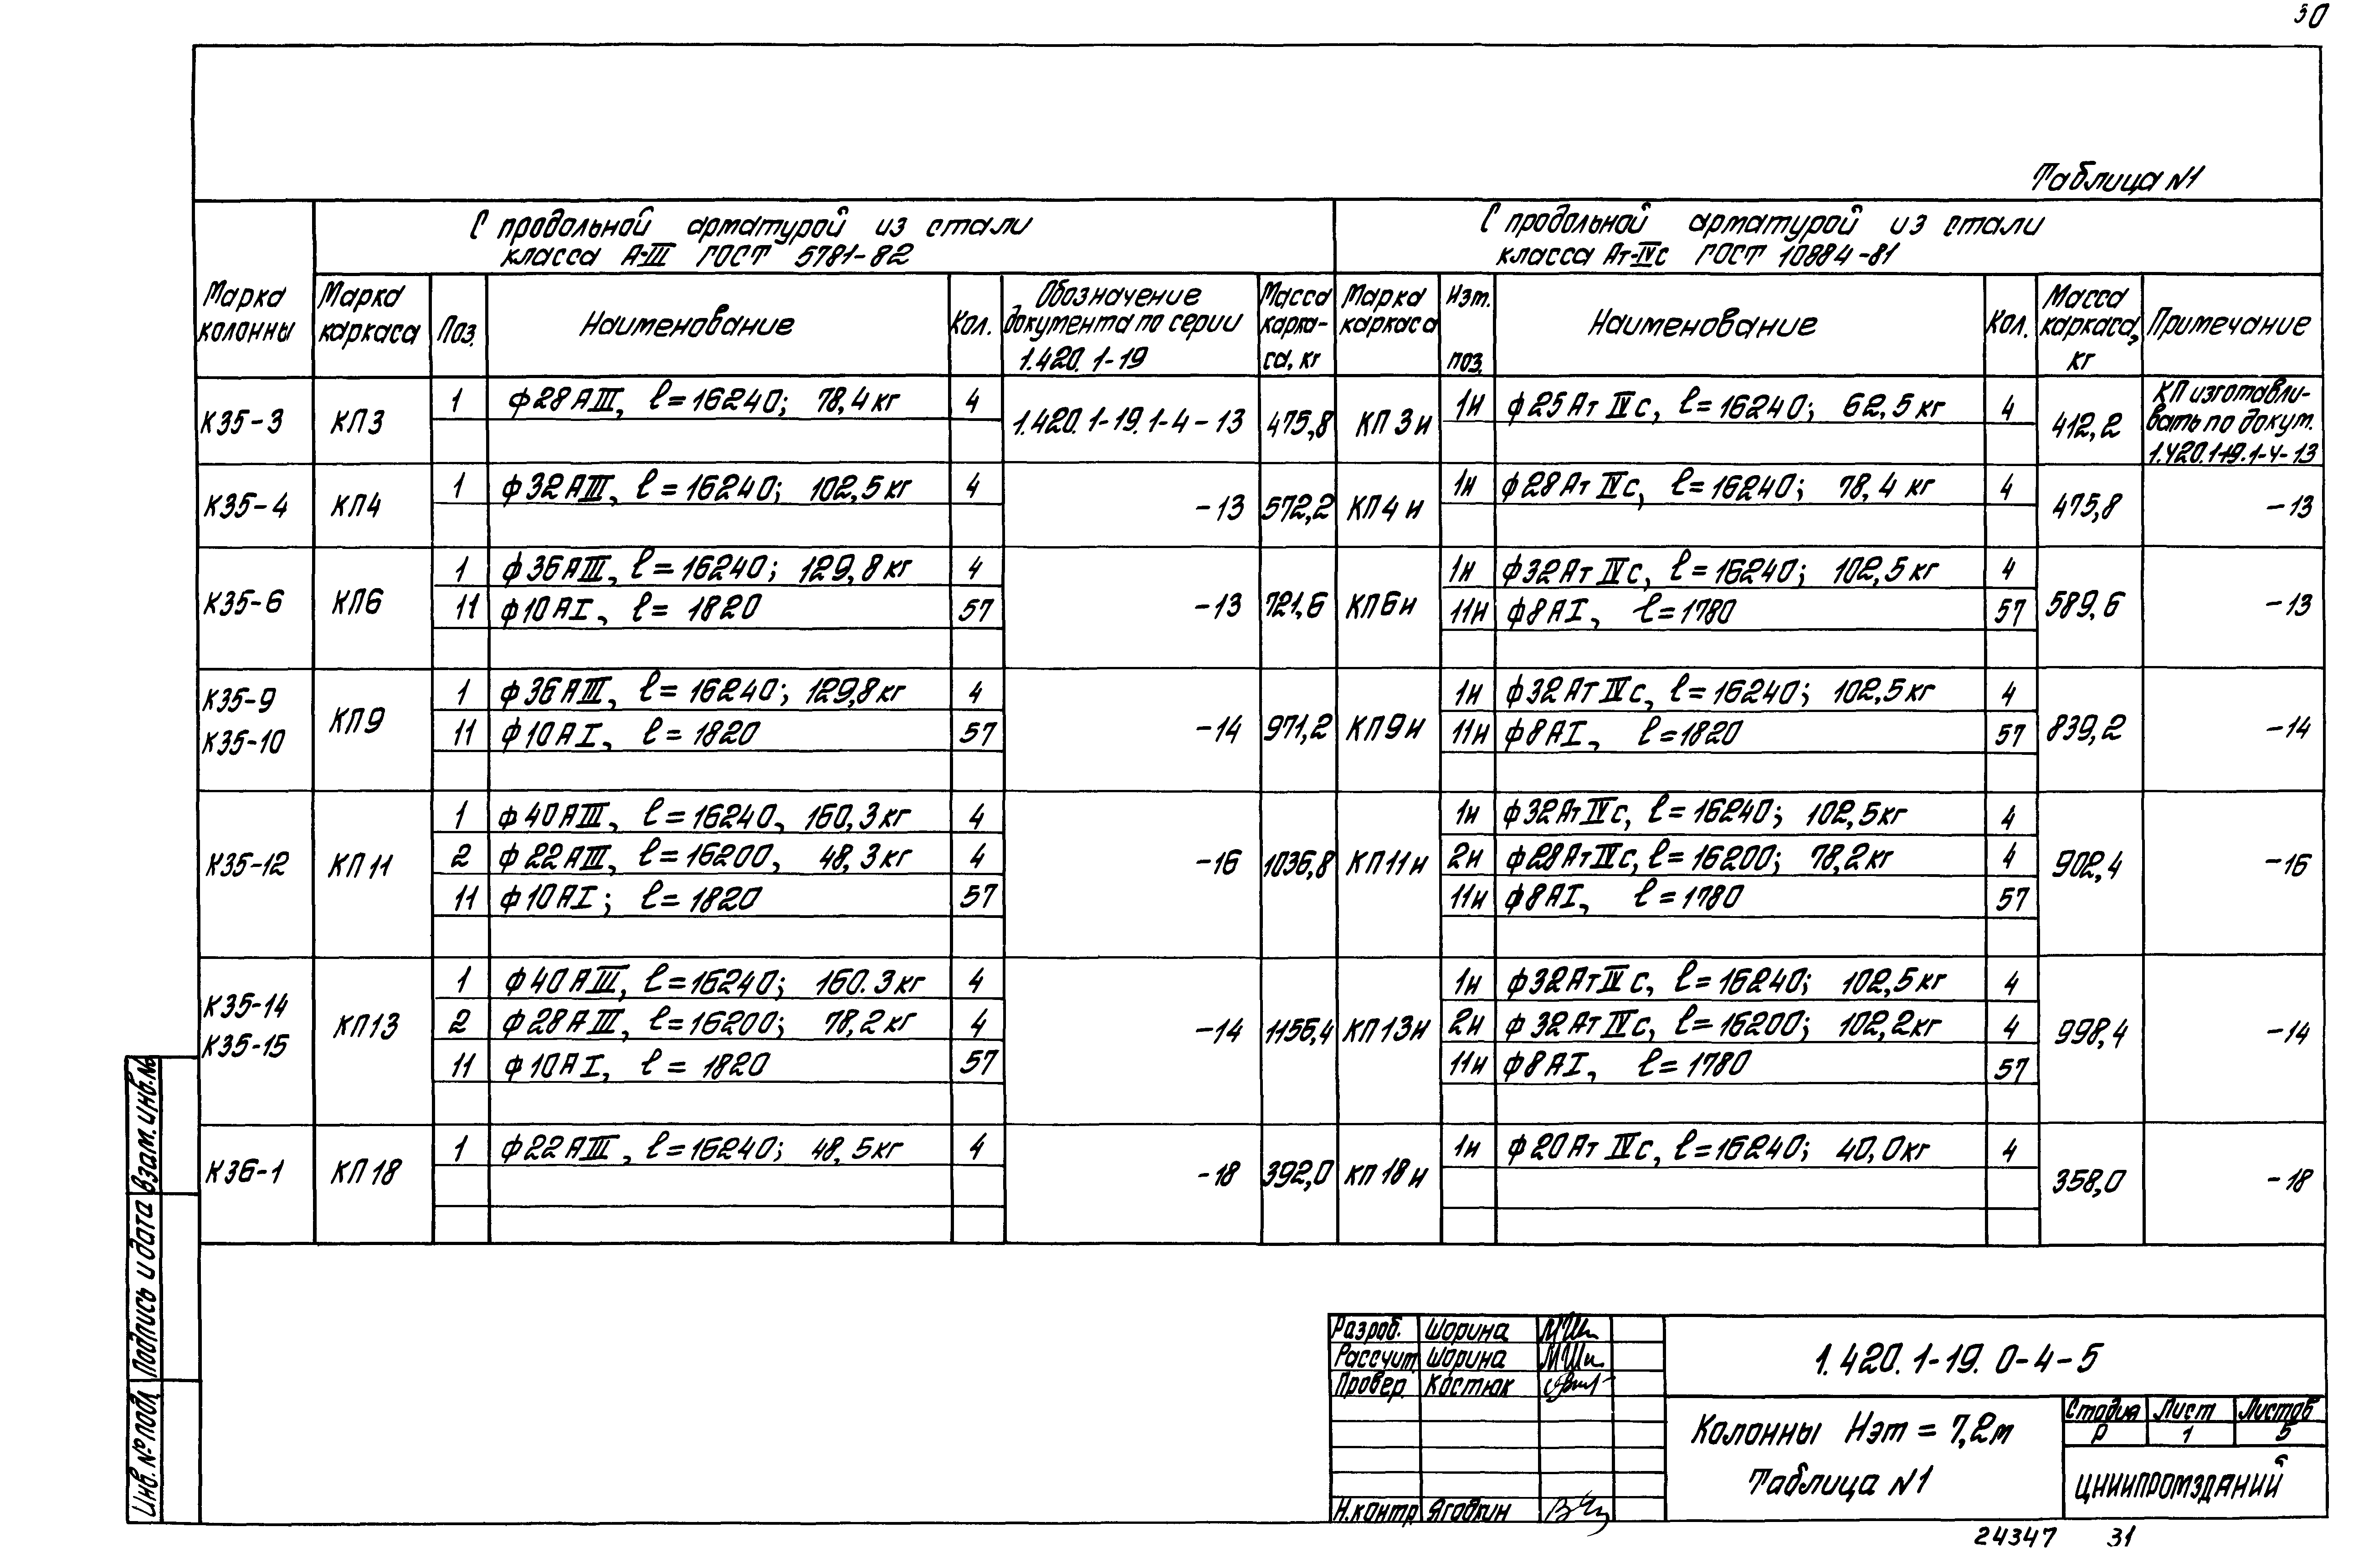 30
Таблица N1
С продольной арматурой из стали
класса А-III ГОСТ 5781-82
С продольной арматурой из стали
класса Ат-IVс ГОСТ 10884-81
Марка колонны
Марка каркаса
Поз.
Наименование
Кол.
Обозначение документа по серии 1.420.1-19
Масса карка-са, кг
Марка каркаса
Изм. поз.
Наименование
Кол.
Масса каркаса, кг
Примечание
К35-3 КП3 1 ф28АIII, ℓ=16240; 78,4кг 4 1.420.1-19.1-4-13 475,8 КП3и 1и ф25АтIVс, ℓ=16240; 62,5кг 4 412,2 КП изготавли-
вать по докум.
1.420.1-19.1-4-13
К35-4 КП4 1 ф32АIII, ℓ=16240; 102,5кг 4 -13 572,2 КП4и 1и ф28АтIVс, ℓ=16240; 78,4кг 4 475,8 -13
К35-6 КП6 1 ф36АIII, ℓ=16240; 129,8кг 4 -13 721,6 КП6и 1и ф32АтIVс, ℓ=16240; 102,5кг 4 589,6 -13
11 ф10АI, ℓ=1820 57 11и ф8АI, ℓ=1780 57
К35-9
К35-10
КП9 1 ф36АIII, ℓ=16240; 129,8кг 4 -14 971,2 КП9и 1и ф32АтIVс, ℓ=16240; 102,5кг 4 839,2 -14
11 ф10АI, ℓ=1820 57 11и ф8АI, ℓ=1820 57
К35-12 КП11 1 ф40АIII, ℓ=16240, 160,3кг 4 -16 1036,8 КП11и 1и ф32АтIVс, ℓ=16240; 102,5кг 4 902,4 -16
2 ф22АIII, ℓ=16200, 48,3кг 4 2и ф28АтIVс, ℓ=16200; 78,2кг 4
11 ф10АI; ℓ=1820 57 11и ф8АI, ℓ=1780 57
К35-14
К35-15
КП13 1 ф40АIII, ℓ=16240; 160.3кг 4 -14 1156,4 КП13и 1и ф32АтIVс, ℓ=16240; 102,5кг 4 998,4 -14
2 ф28АIII, ℓ=16200; 78,2кг 4 2и ф32АтIVс, ℓ=16200; 102,2кг 4
11 ф10АI, ℓ=1820 57 11и ф8АI, ℓ=1780 57
К36-1 КП18 1 ф22АIII, ℓ=16240; 48,5кг 4 -18 392,0 КП18и 1и ф20АтIVс, ℓ=16240; 40,0кг 4 358,0 -18
Взам. инв. №
Подпись и дата
Инв. № подл.
Разраб. Шорина
Рассчит. Шорина
Провер. Костюк
Н.контр. Ягодкин
1.420.1-19.0-4-5
Колонны Нэт = 7,2м
Таблица N1
Стадия Лист Листов
Р 1 5
ЦНИИПРОМЗДАНИЙ
24347 31